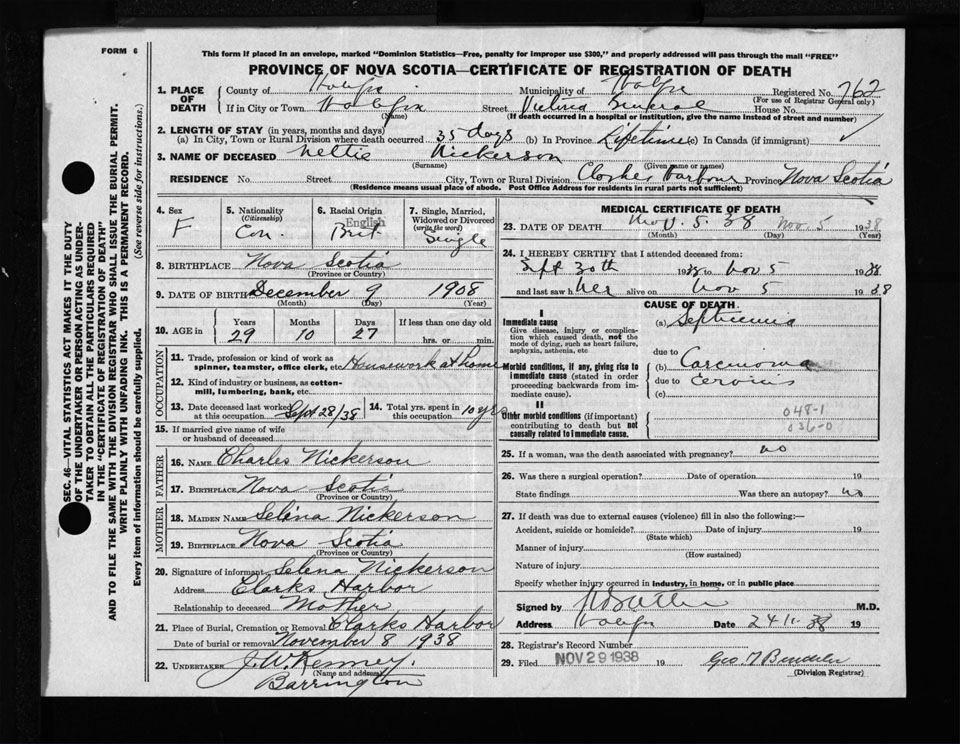 FORM 6
This form if placed in an envelope, marked "Dominion Statistics—Free, penalty for improper use $300," and properly addressed will pass through the mail "FREE"
PROVINCE OF NOVA SCOTIA—CERTIFICATE OF REGISTRATION OF DEATH
1. PLACE OF DEATH
County of Halifax
Municipality of Halifax
Registered No. 762
(For use of Registrar General only)
If in City or Town Halifax
(Name)
Street Victoria General House No.
(If death occurred in a hospital or institution, give the name instead of street and number)
2. LENGTH OF STAY (in years, months and days)
(a) In City, Town or Rural Division where death occurred 35 days (b) In Province Lifetime (c) In Canada (if immigrant)
3. NAME OF DECEASED Nettie Nickerson
(Surname) (Given name or names)
RESIDENCE No. Street City, Town or Rural Division Clarkes Harbour Province Nova Scotia
(Residence means usual place of abode. Post Office Address for residents in rural parts not sufficient)
4. Sex
F
5. Nationality
(Citizenship)
Can.
6. Racial Origin
English
Brit
7. Single, Married, Widowed or Divorced
(write the word)
Single
8. BIRTHPLACE Nova Scotia
(Province or Country)
9. DATE OF BIRTH December 9 1908
(Month) (Day) (Year)
10. AGE in
Years Months Days If less than one day old
29 10 27 hrs. or min.
OCCUPATION
11. Trade, profession or kind of work as spinner, teamster, office clerk, etc. Housework at home
12. Kind of industry or business, as cotton-mill, lumbering, bank, etc.
13. Date deceased last worked at this occupation Sept 28/38
14. Total yrs. spent in this occupation 10 yrs
15. If married give name of wife or husband of deceased
FATHER
16. NAME Charles Nickerson
17. BIRTHPLACE Nova Scotia
(Province or Country)
MOTHER
18. MAIDEN NAME Selena Nickerson
19. BIRTHPLACE Nova Scotia
(Province or Country)
20. Signature of informant Selena Nickerson
Address Clarks Harbor
Relationship to deceased Mother
21. Place of Burial, Cremation or Removal Clarks Harbor
Date of burial or removal November 8 1938
22. UNDERTAKER J. W. Kenney.
(Name and address)
Barrington
MEDICAL CERTIFICATE OF DEATH
23. DATE OF DEATH Nov. 5. 38 Nov. 5 1938
(Month) (Day) (Year)
24. I HEREBY CERTIFY that I attended deceased from:
Sept 30th 1938 to Nov 5 1938
and last saw her alive on Nov 5 1938
CAUSE OF DEATH.
I
Immediate cause
Give disease, injury or complication which caused death, not the mode of dying, such as heart failure, asphyxia, asthenia, etc
(a)
due to
Morbid conditions, if any, giving rise to immediate cause (stated in order proceeding backwards from immediate cause).
(b) Carcinoma
due to
(c)
II
Other morbid conditions (if important) contributing to death but not causally related to immediate cause.
048-1
036-0
25. If a woman, was the death associated with pregnancy? no
26. Was there a surgical operation? Date of operation 19
State findings Was there an autopsy? no
27. If death was due to external causes (violence) fill in also the following:—
Accident, suicide or homicide? Date of injury 19
(State which)
Manner of injury
(How sustained)
Nature of injury
Specify whether injury occurred in industry, in home, or in public place
Signed by M.D.
Address Halifax Date 24 11. 38 19
28. Registrar's Record Number
29. Filed NOV 29 1938 19
(Division Registrar)
SEC. 46—VITAL STATISTICS ACT MAKES IT THE DUTY
OF THE UNDERTAKER OR PERSON ACTING AS UNDERTAKER TO OBTAIN ALL THE PARTICULARS REQUIRED
IN THE "CERTIFICATE OF REGISTRATION OF DEATH"
AND TO FILE THE SAME WITH THE DIVISION REGISTRAR WHO SHALL ISSUE THE BURIAL PERMIT.
WRITE PLAINLY WITH UNFADING INK. THIS IS A PERMANENT RECORD.
Every item of information should be carefully supplied. (See reverse side for instructions.)